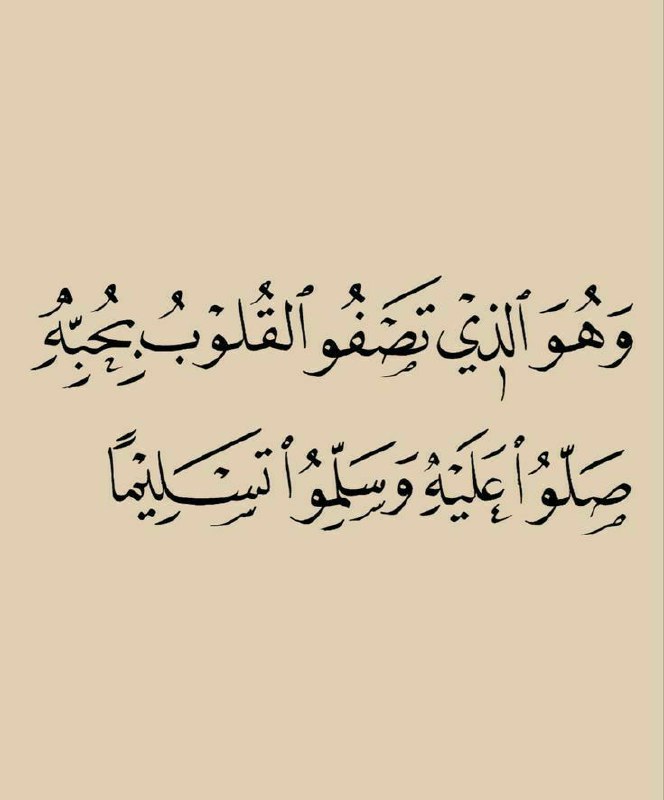 وَهُوَ ٱلذِيْ تَصْفُو ٱلقُلُوْبُ بِحُبِّهِ
صَلُّوُا عَلَيْهِ وَسَلِّمُوُا تَسْلِيْمًا